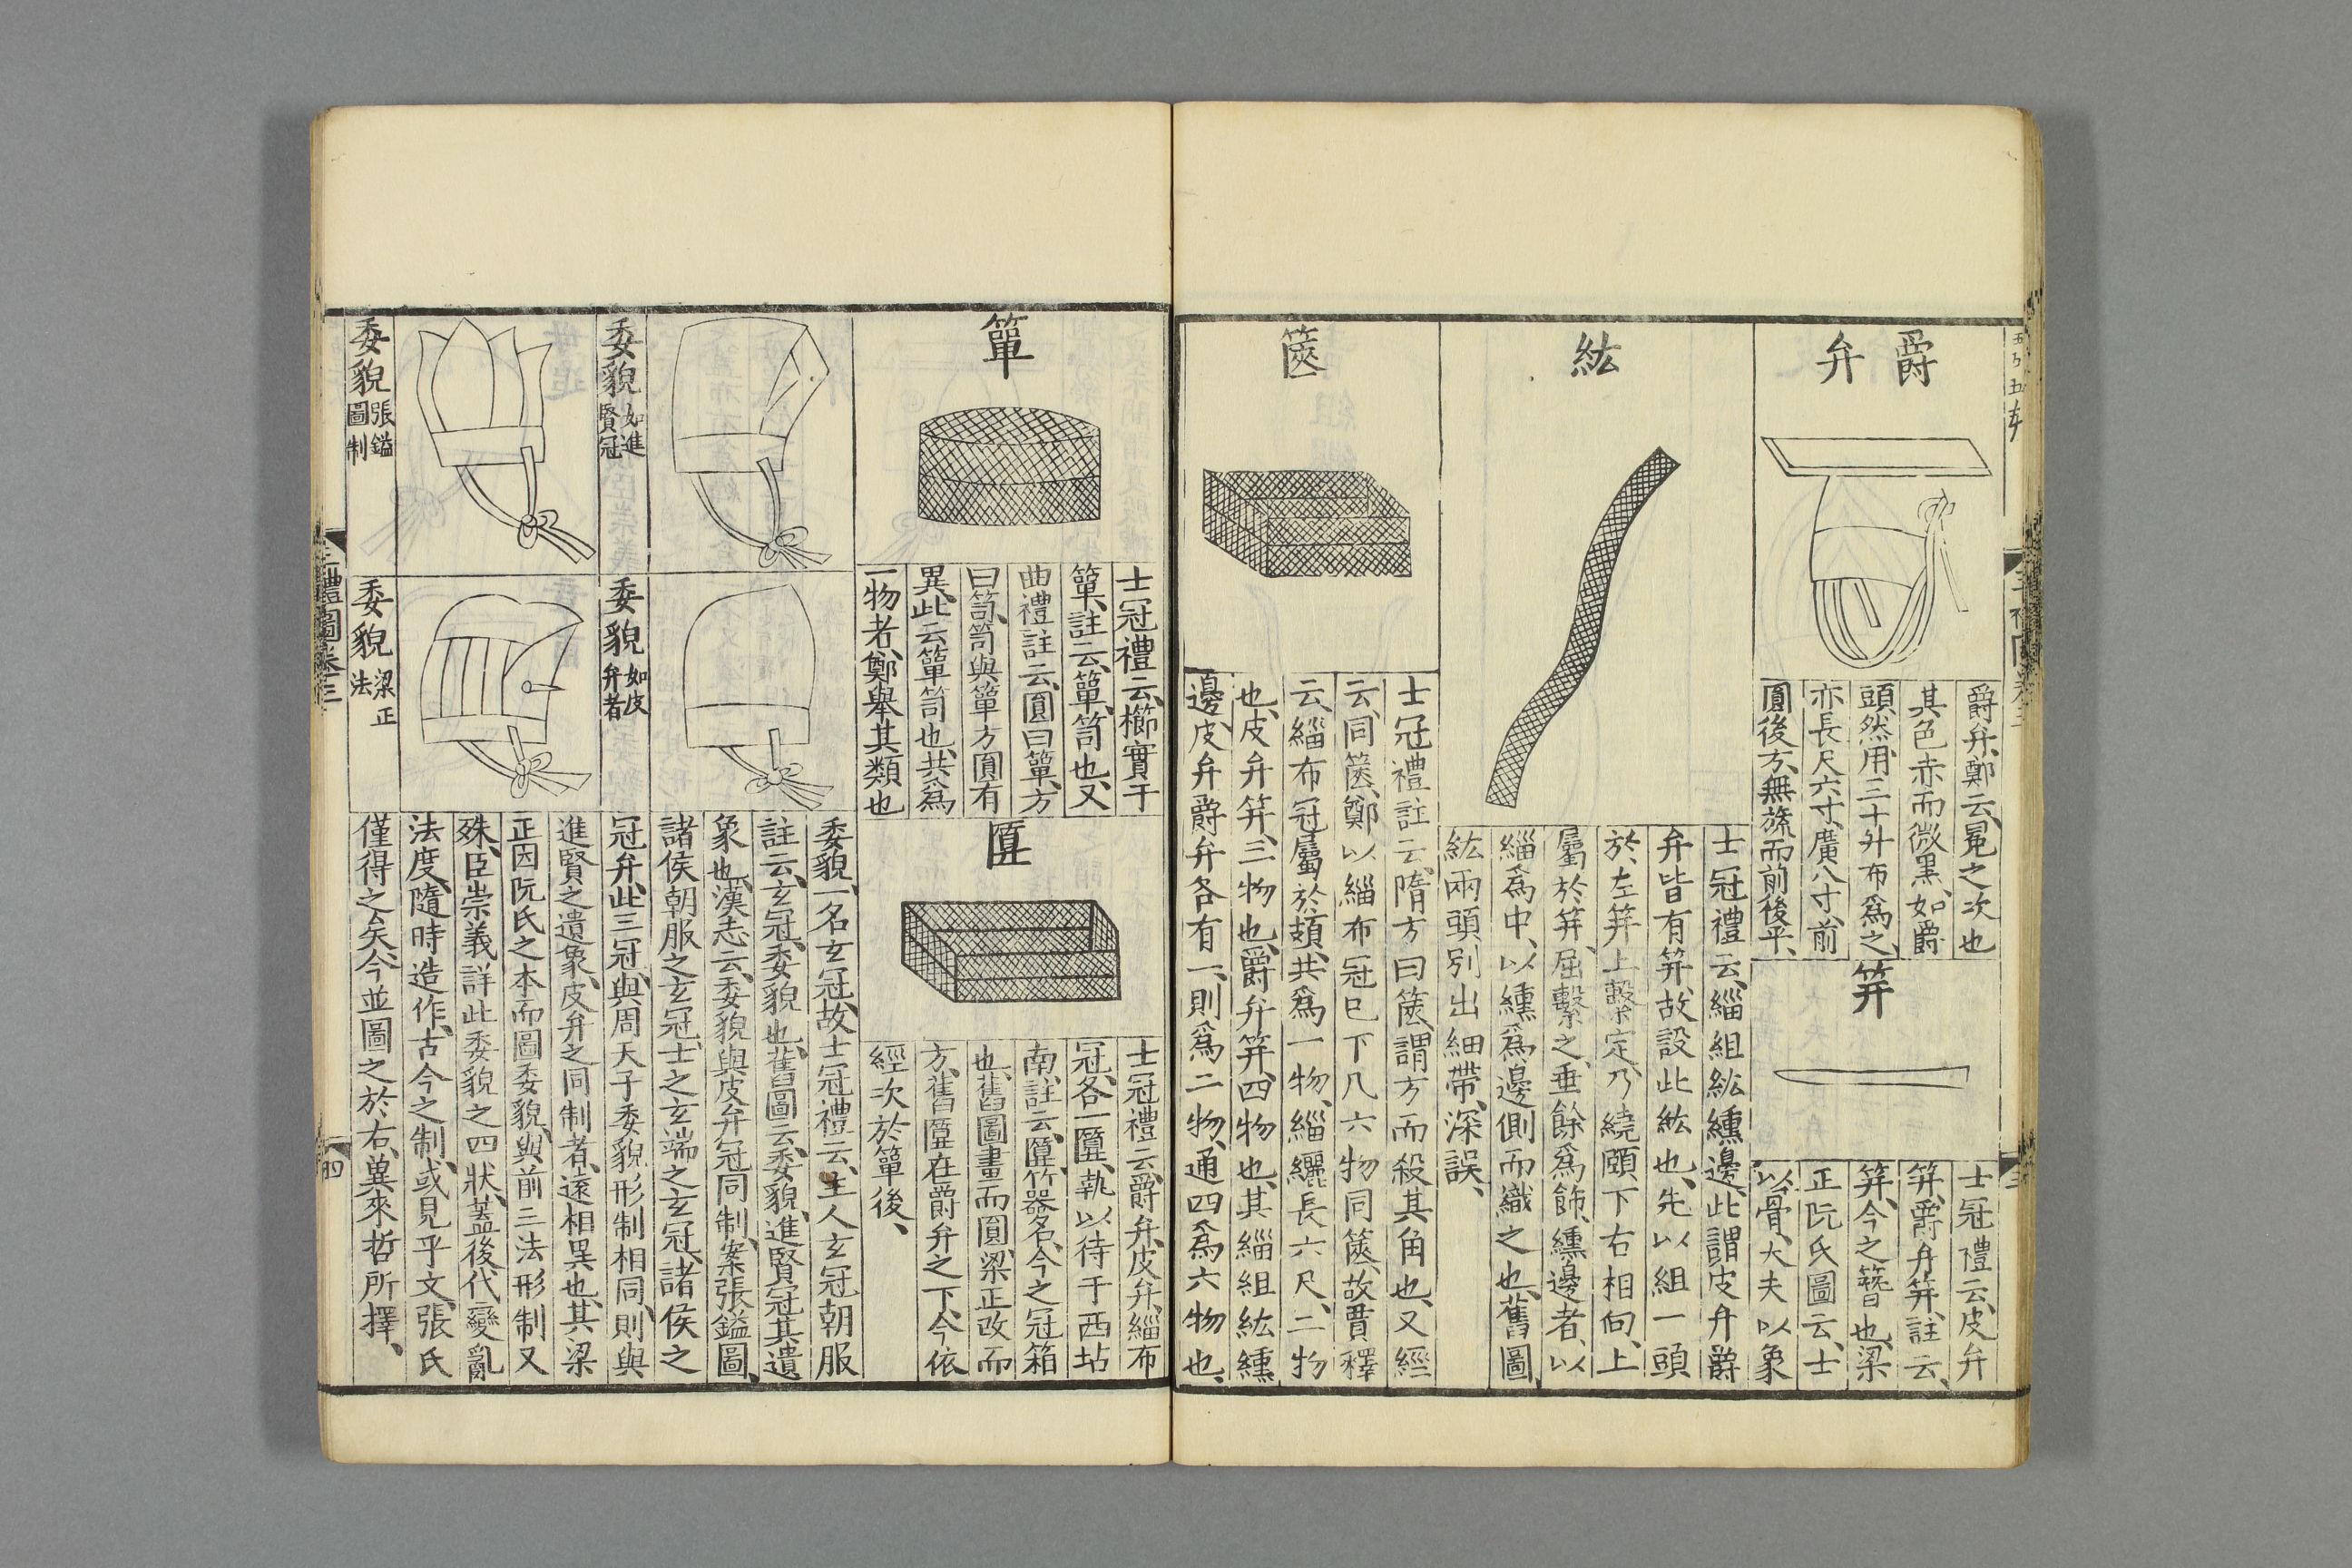 爵弁
爵弁、鄭云、冕之次也
其色赤而微黑、如爵
頭然、用三十升布爲之、
亦長尺六寸、廣八寸、前
圓後方、無旒而前後平、
笄
士冠禮云、皮弁
笄、爵弁笄、註云、
笄、今之簪也、梁
正阮氏圖云、士
以骨、大夫以象
紘
士冠禮云、緇組紘纁邊、此謂皮弁爵
弁皆有笄、故設此紘也、先以組一頭
於左笄上繫定、乃繞頤下右相向、上
屬於笄、屈繫之、垂餘爲飾、纁邊者、以
緇爲中、以纁爲邊側而織之也、舊圖
紘兩頭別出細帶、深誤、
篋
士冠禮註云、隋方曰篋、謂方而殺其角也、又經
云、同篋、鄭以緇布冠已下凡六物同篋、故賈釋
云、緇布冠屬於頍、共爲一物、緇纚長六尺、二物
也、皮弁笄、三物也、爵弁笄、四物也、其緇組紘纁
邊、皮弁爵弁各有一、則爲二物、通四爲六物也、
簞
士冠禮云、櫛實于
簞、註云、簞、笥也、又
曲禮註云、圓曰簞、方
曰笥、笥與簞方圓有
異、此云簞笥也、共爲
一物者、鄭舉其類也
匴
士冠禮云、爵弁、皮弁、緇布
冠、各一匴、執以待于西坫
南、註云、匴、竹器名、今之冠箱
也、舊圖畫而圓、梁正改而
方、舊匴在爵弁之下、今依
經次於簞後、
委貌 如進賢冠
委貌 如皮弁者
委貌 張鎰圖制
委貌 梁正法
委貌、一名玄冠、故士冠禮云、主人玄冠朝服
註云、玄冠、委貌也、舊圖云、委貌、進賢冠其遺
象也、漢志云、委貌與皮弁冠同制、案張鎰圖、
諸侯朝服之玄冠、士之玄端之玄冠、諸侯之
冠弁、此三冠、與周天子委貌形制相同、則與
進賢之遺象、皮弁之同制者、遠相異也、其梁
正因阮氏之本而圖委貌、與前三法形制又
殊、臣崇義詳此委貌之四狀、蓋後代變亂
法度、隨時造作、古今之制、或見乎文、張氏
僅得之矣、今並圖之於右、冀來哲所擇、
三禮圖卷三
四